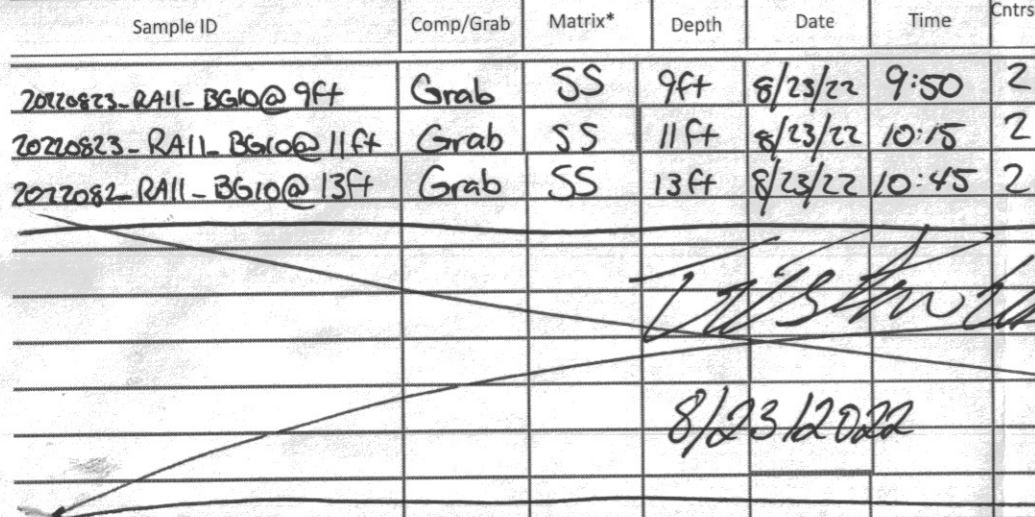 Sample ID Comp/Grab Matrix* Depth Date Time Cntrs
20220823_RA11_BG10@ 9ft Grab SS 9ft 8/23/22 9:50 2
20220823_RA11_BG10@ 11ft Grab SS 11ft 8/23/22 10:15 2
2022082_RA11_BG10@ 13ft Grab SS 13ft 8/23/22 10:45 2
8/23/2022